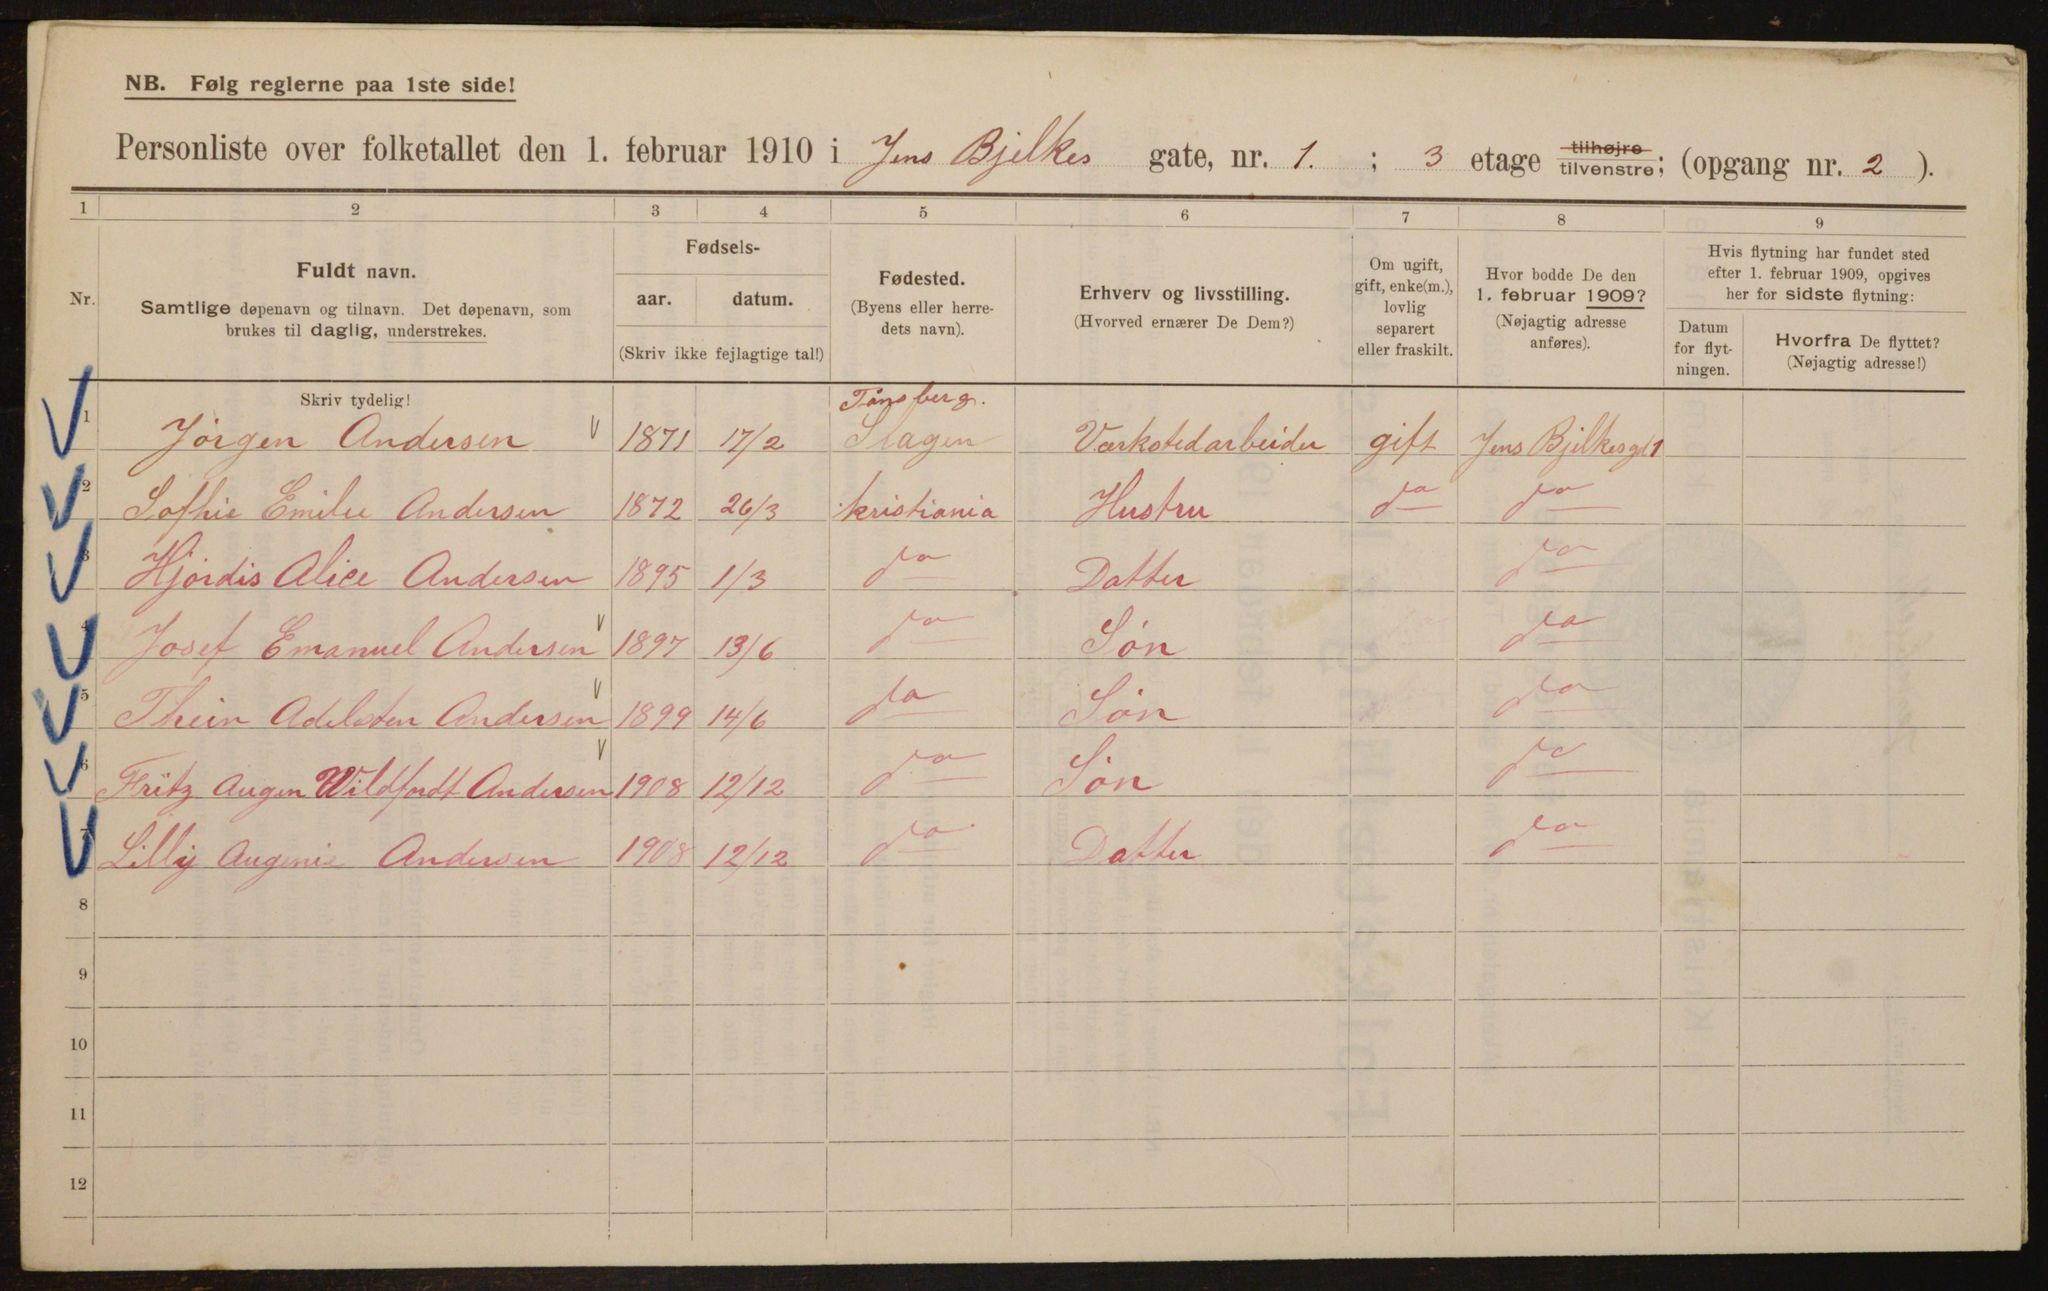 NB. Følg reglerne paa 1ste side!
Personliste over folketallet den 1. februar 1910 i Jens Bjelkes gate, nr. 1. ; 3 etage tilhøjre tilvenstre; (opgang nr. 2 ).
1 2 3 4 5 6 7 8 9
Nr.
Fuldt navn.
Samtlige døpenavn og tilnavn. Det døpenavn, som
brukes til daglig, understrekes.
Fødsels-
aar. datum.
(Skriv ikke fejlagtige tal!)
Fødested.
(Byens eller herre-
dets navn).
Erhverv og livsstilling.
(Hvorved ernærer De Dem?)
Om ugift,
gift, enke(m.),
lovlig
separert
eller fraskilt.
Hvor bodde De den
1. februar 1909?
(Nøjagtig adresse
anføres).
Hvis flytning har fundet sted
efter 1. februar 1909, opgives
her for sidste flytning:
Datum
for flyt-
ningen.
Hvorfra De flyttet?
(Nøjagtig adresse!)
Skriv tydelig!
Tønsberg.
1 Jørgen Andersen 1871 17/2 Slagen Værkstedarbeider gift Jens Bjelkesgt 1
2 Sofhie Emilie Andersen 1872 26/3 Kristiania Hustru do do
3 Hjørdis Alice Andersen 1895 1/3 do Datter do
4 Josef Emanuel Andersen 1897 13/6 do Søn do
5 Thein Adelsten Andersen 1899 14/6 do Søn do
6 Fritz Augen Wildfordt Andersen 1908 12/12 do Søn do
7 Lilly Augenie Andersen 1908 12/12 do Datter do
8
9
10
11
12